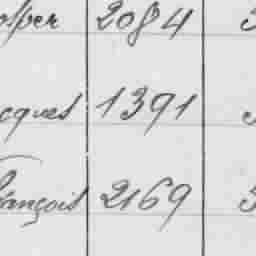 osper 2084 3
cques 1391
rançois 2169 3